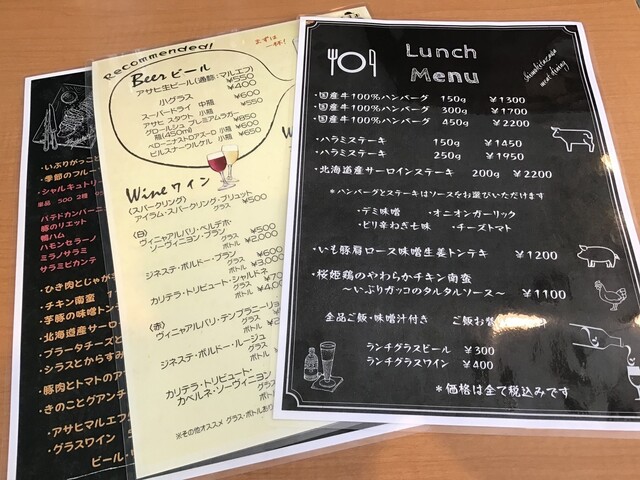 Lunch
Menu
・国産牛100%ハンバーグ 150g ¥1300
・国産牛100%ハンバーグ 300g ¥1700
・国産牛100%ハンバーグ 450g ¥2200
・ハラミステーキ 150g ¥1450
・ハラミステーキ 250g ¥1950
・北海道産サーロインステーキ 200g ¥2200
*ハンバーグとステーキはソースをお選びいただけます
・デミ味噌 ・オニオンガーリック
・ピリ辛ねぎ七味 ・チーズトマト
・いも豚肩ロース味噌生姜トンテキ ¥1200
・桜姫鶏のやわらかチキン南蛮
〜いぶりガッコのタルタルソース〜 ¥1100
全品ご飯・味噌汁付き ご飯お替
ランチグラスビール ¥300
ランチグラスワイン ¥400
*価格は全て税込みです
Recommended!
まずは一杯!
Beer ビール
アサヒ生ビール(通称:マルエフ) ¥550
小グラス ¥400
スーパードライ 中瓶 ¥600
アサヒ スタウト 小瓶 ¥550
グロールシュ プレミアムラガー
瓶(450ml) ¥850
ペローニナストロアズーロ 小瓶 ¥650
ピルスナーウルケル 小瓶 ¥650
Wine ワイン
(スパークリング)
アイラム・スパークリング・ブリュット
グラス ¥500
(白)
ヴィニャアルバリ・ベルデホ・
ソーヴィニヨン・ブラン グラス ¥500
ボトル ¥2,000
ジネステ・ボルドー・ブラン グラス
ボトル ¥3,000
カリテラ・トリビュート・シャルドネ
グラス
ボトル
(赤)
ヴィニャアルバリ・テンプラニーリョ
グラス
ボトル
ジネステ・ボルドー・ルージュ
グラス
ボトル
カリテラ・トリビュート・
カベルネ・ソーヴィニヨン
グラス
ボトル
※その他オススメ グラス・ボトルあり
・いぶりがっこ
・季節のフルー
・シャルキュトリ
単品 500 2種
パテドカンパーニ
豚のリエット
鴨ハム
ハモンセラーノ
ミラノサラミ
サラミピカンテ
・ひき肉とじゃが
・チキン南蛮
・芋豚の味噌トン
・北海道産サーロ
・ブラータチーズと
・シラスとからすみ
・豚肉とトマトのア
・きのことグアンチ
・アサヒマルエフ
・グラスワイン
ビール・